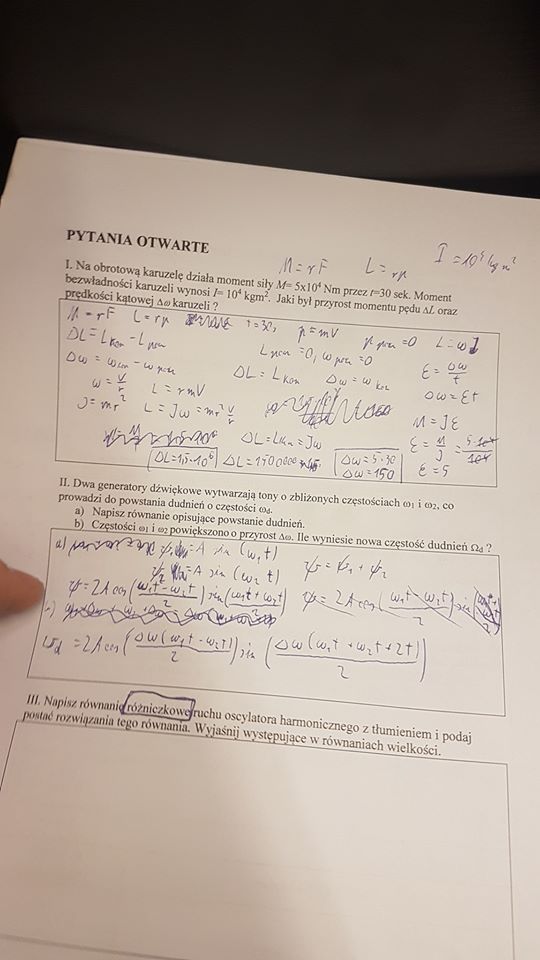 PYTANIA OTWARTE
M = rF L = rp I = 10⁴ kg m²
I. Na obrotową karuzelę działa moment siły M= 5x10⁴ Nm przez t=30 sek. Moment
bezwładności karuzeli wynosi I= 10⁴ kgm². Jaki był przyrost momentu pędu ΔL oraz
prędkości kątowej Δω karuzeli ?
M = rF L = rp t = 30s p = mV L = ωJ
ΔL = Lkon - Lpocz Lpocz = 0, ωpocz = 0 ε = Δω/t
Δω = ωkon - ωpocz ΔL = Lkon Δω = ωkon Δω = εt
ω = V/r L = rmV M = Jε
J = mr² L = Jω = mr² V/r ε = M/J = 5·10⁴/10⁴
ΔL = Lkon = Jω Δω = 5·30 ε = 5
ΔL = 1,5·10⁶ ΔL = 1500000 Δω = 150
II. Dwa generatory dźwiękowe wytwarzają tony o zbliżonych częstościach ω1 i ω2, co
prowadzi do powstania dudnień o częstości ωd.
a) Napisz równanie opisujące powstanie dudnień.
b) Częstości ω1 i ω2 powiększono o przyrost Δω. Ile wyniesie nowa częstość dudnień Ωd ?
a) ψ₁ = A sin (ω₁t)
ψ₂ = A sin (ω₂t) ψ = ψ₁ + ψ₂
ψ = 2A cos (ω₁t - ω₂t / 2) sin (ω₁t + ω₂t / 2)
ωd = 2A cos (Δω(ω₁t - ω₂t) / 2) sin (Δω(ω₁t + ω₂t + 2t) / 2)
III. Napisz równanie różniczkowe ruchu oscylatora harmonicznego z tłumieniem i podaj
postać rozwiązania tego równania. Wyjaśnij występujące w równaniach wielkości.